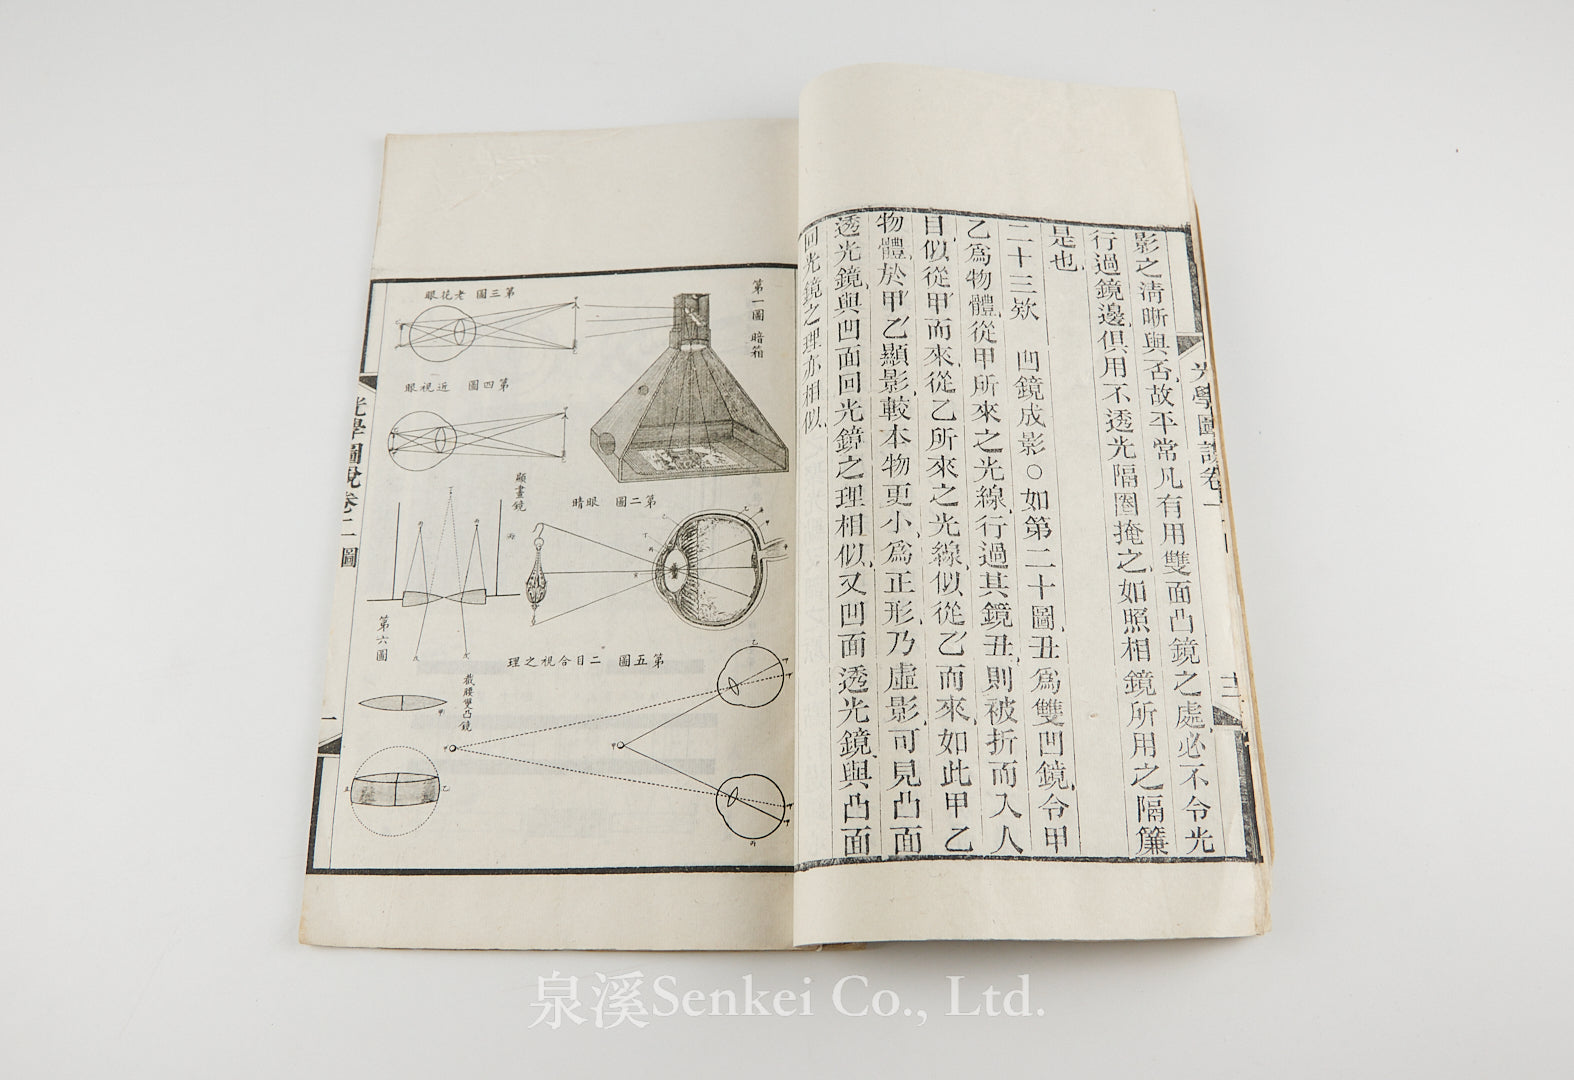 影之清晰與否故平常凡有用雙面凸鏡之處必不令光
行過鏡邊俱用不透光隔圈掩之如照相鏡所用之隔簾
是也
二十三欵 凹鏡成影○如第二十圖丑爲雙凹鏡令甲
乙爲物體從甲所來之光線行過其鏡丑則被折而入人
目似從甲而來從乙所來之光線似從乙而來如此甲乙
物體於甲乙顯影較本物更小爲正形乃虛影可見凸面
透光鏡與凹面回光鏡之理相似又凹面透光鏡與凸面
回光鏡之理亦相似
第一圖 暗箱
眼花老 圖三第
眼視近 圖四第
顯畫鏡
睛眼 圖二第
第六圖
理之視合目二 圖五第
截腰雙凸鏡
光學圖說卷二圖
一
泉溪Senkei Co., Ltd.